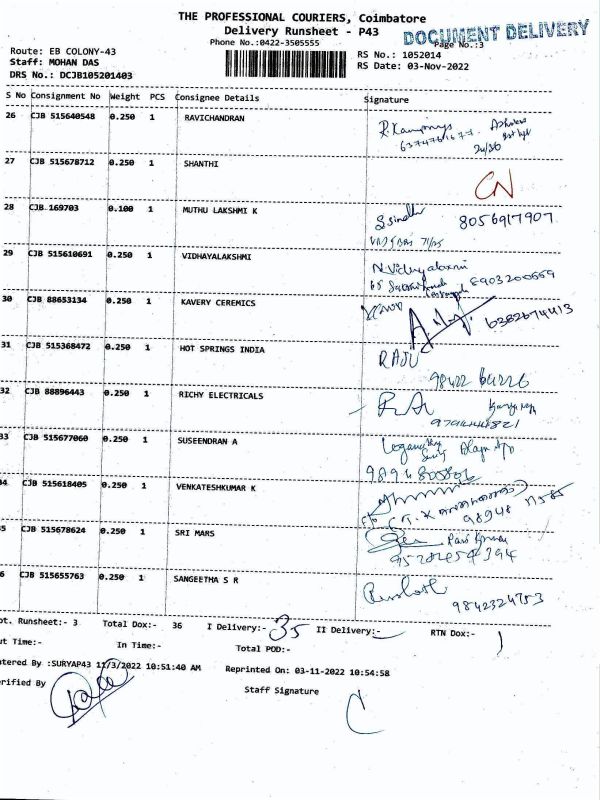 THE PROFESSIONAL COURIERS, Coimbatore
Delivery Runsheet - P43
DOCUMENT DELIVERY
Phone No.:0422-3505555
Page No.:3
Route: EB COLONY-43
Staff: MOHAN DAS
DRS No.: DCJB105201403
RS No.: 1052014
RS Date: 03-Nov-2022
S No Consignment No Weight PCS Consignee Details Signature
26 CJB 515640548 0.250 1 RAVICHANDRAN
27 CJB 515678712 0.250 1 SHANTHI
CN
28 CJB 169703 0.100 1 MUTHU LAKSHMI K
8056917907
29 CJB 515610691 0.250 1 VIDHAYALAKSHMI
N.Vidhyalaxmi
8903200559
30 CJB 88653134 0.250 1 KAVERY CEREMICS
6382674413
31 CJB 515368472 0.250 1 HOT SPRINGS INDIA
RAJU
32 CJB 88896443 0.250 1 RICHY ELECTRICALS
33 CJB 515677060 0.250 1 SUSEENDRAN A
34 CJB 515618405 0.250 1 VENKATESHKUMAR K
98948 11585
5 CJB 515678624 0.250 1 SRI MARS
6 CJB 515655763 0.250 1 SANGEETHA S R
9842324753
ot. Runsheet:- 3 Total Dox:- 36 I Delivery:- 35 II Delivery:- RTN Dox:- 1
ut Time:- In Time:- Total POD:-
ntered By :SURYAP43 11/3/2022 10:51:40 AM Reprinted On: 03-11-2022 10:54:58
erified By
Staff Signature